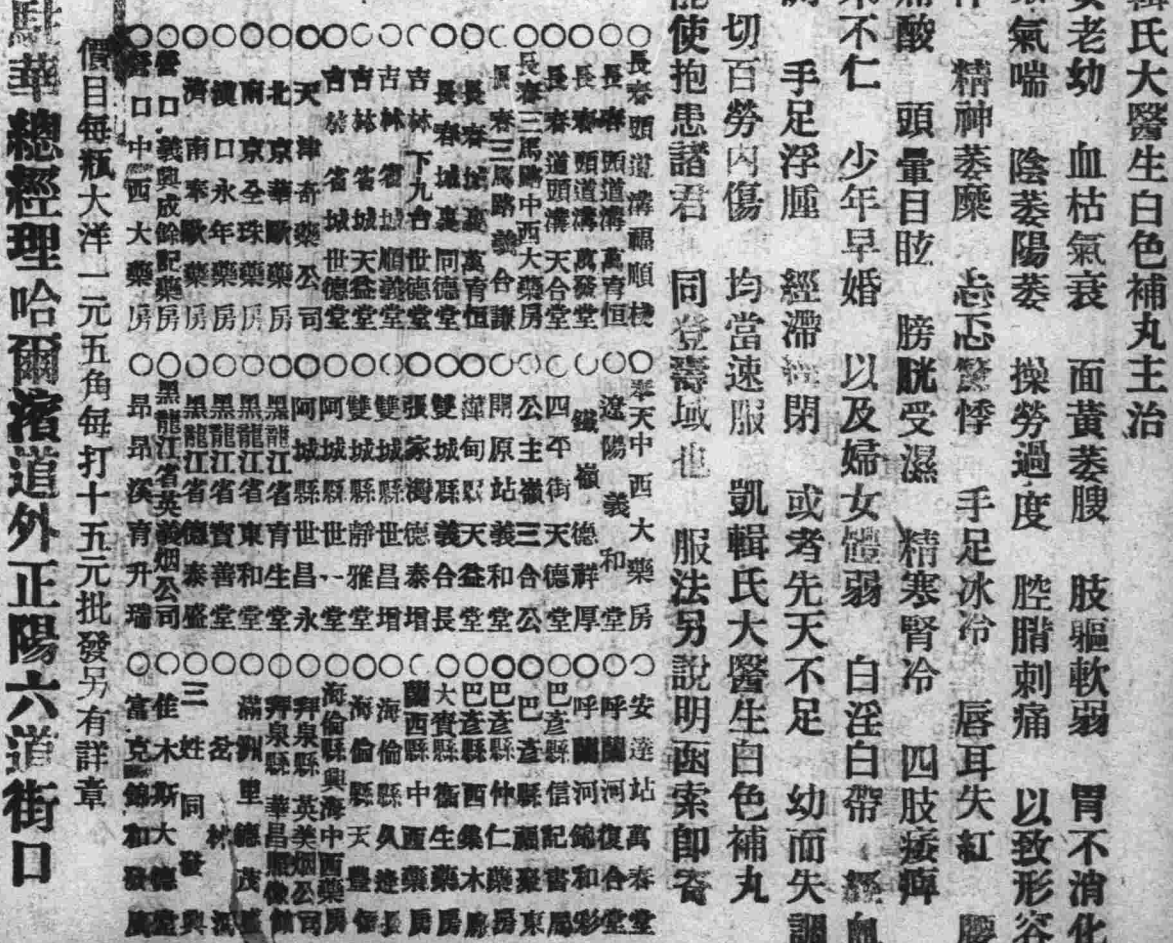 輯氏大醫生白色補丸主治
老幼 血枯氣衰 面黃萎膄 肢軀軟弱 胃不消化
氣喘 陰萎陽萎 操勞過度 腔腊刺痛 以致形容
精神萎糜 忐忑驚悸 手足冰冷 唇耳失紅
酸 頭暈目眩 膀胱受濕 精寒腎冷 四肢痿痺
不仁 少年早婚 以及婦女體弱 白淫白帶 經血
手足浮腫 經滯經閉 或者先天不足 幼而失調
切百勞內傷 均當速服 凱輯氏大醫生白色補丸
能使抱患諸君 同登壽域也 服法另說明函索卽寄
○長春頭道溝福順棧
○長春頭道溝萬育恒
○長春頭道溝萬發堂
○長春道頭溝天合堂
○長春三馬路中西大藥房
○長春三馬路義合謙
○長春城裏萬育恒
○長春城裏同德堂
○吉林下九台世德堂
○吉林省城順義堂
○吉林省城天益堂
○吉林省城世德堂
○天津奇藥公司
○北京華歐藥房
○南京全珠藥房
○漢口永年藥房
○濟南泰歐藥房
○營口義興成餘記藥房
○營口中西大藥房
○奉天中西大藥房
○遼陽義和堂
○鐵嶺德祥厚
○四平街天德堂
○公主嶺三合公
○開原站義和堂
○縣天益堂
○雙城縣義合長
○張家灣德泰增
○雙城縣世昌增
○雙城縣靜雅堂
○阿城縣世一堂
○阿城縣世昌永
○黑龍江省育生堂
○黑龍江省東和堂
○黑龍江省寶善堂
○黑龍江省德泰盛
○黑龍江省英義烟公司
○昂昂溪育升瑞
○安達站萬春堂
○呼蘭河復合堂
○呼蘭河錦和彩
○巴彥縣信記書局
○巴彥縣福聚東
○巴彥縣仲仁藥房
○巴彥縣西集木
○大賚縣衛生藥房
○蘭西縣中西藥房
○海倫縣久遠長
○海倫縣天豐
○海倫縣興海中西藥房
○拜泉縣英美烟公司
○拜泉縣華昌照像館
○滿洲里德茂盛
○岔林
○三姓同發興
○佳木斯大德堂
○富克錦和發
價目每瓶大洋一元五角每打十五元批發另有詳章
駐華總經理哈爾濱道外正陽六道街口